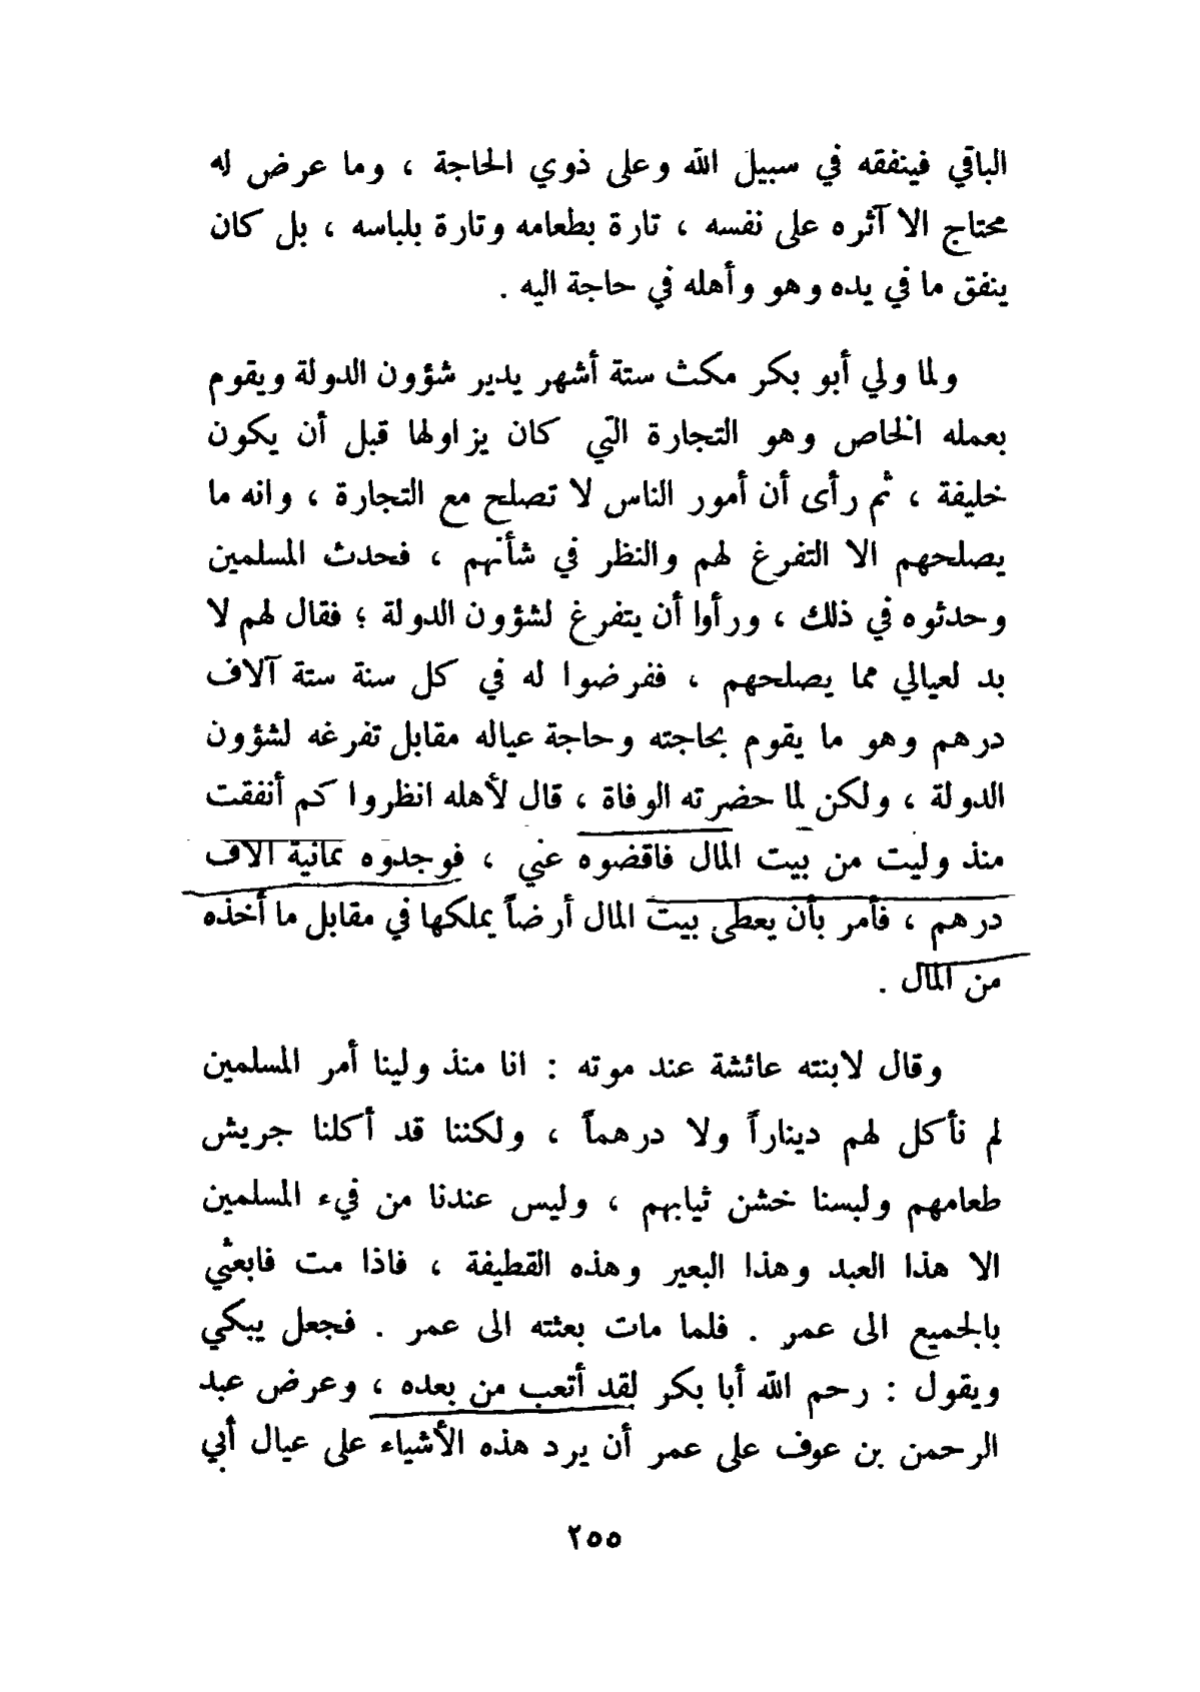 الباقي فينفقه في سبيل الله وعلى ذوي الحاجة ، وما عرض له
محتاج الا آثره على نفسه ، تارة بطعامه وتارة بلباسه ، بل كان
ينفق ما في يده وهو وأهله في حاجة اليه .
ولما ولي أبو بكر مكث ستة أشهر يدير شؤون الدولة ويقوم
بعمله الخاص وهو التجارة التي كان يزاولها قبل أن يكون
خليفة ، ثم رأى أن أمور الناس لا تصلح مع التجارة ، وانه ما
يصلحهم الا التفرغ لهم والنظر في شأنهم ، فحدث المسلمين
وحدثوه في ذلك ، ورأوا أن يتفرغ لشؤون الدولة ؛ فقال لهم لا
بد لعيالي مما يصلحهم ، ففرضوا له في كل سنة ستة آلاف
درهم وهو ما يقوم بحاجته وحاجة عياله مقابل تفرغه لشؤون
الدولة ، ولكن لما حضرته الوفاة ، قال لأهله انظروا كم أنفقت
منذ وليت من بيت المال فاقضوه عني ، فوجدوه ثمانية آلاف
درهم ، فأمر بأن يعطى بيت المال أرضاً يملكها في مقابل ما أخذه
من المال .
وقال لابنته عائشة عند موته : انا منذ ولينا أمر المسلمين
لم نأكل لهم ديناراً ولا درهماً ، ولكننا قد أكلنا جريش
طعامهم ولبسنا خشن ثيابهم ، وليس عندنا من فيء المسلمين
الا هذا العبد وهذا البعير وهذه القطيفة ، فاذا مت فابعثي
بالجميع الى عمر . فلما مات بعثته الى عمر . فجعل يبكي
ويقول : رحم الله أبا بكر لقد أتعب من بعده ، وعرض عبد
الرحمن بن عوف على عمر أن يرد هذه الأشياء على عيال أبي
٢٥٥